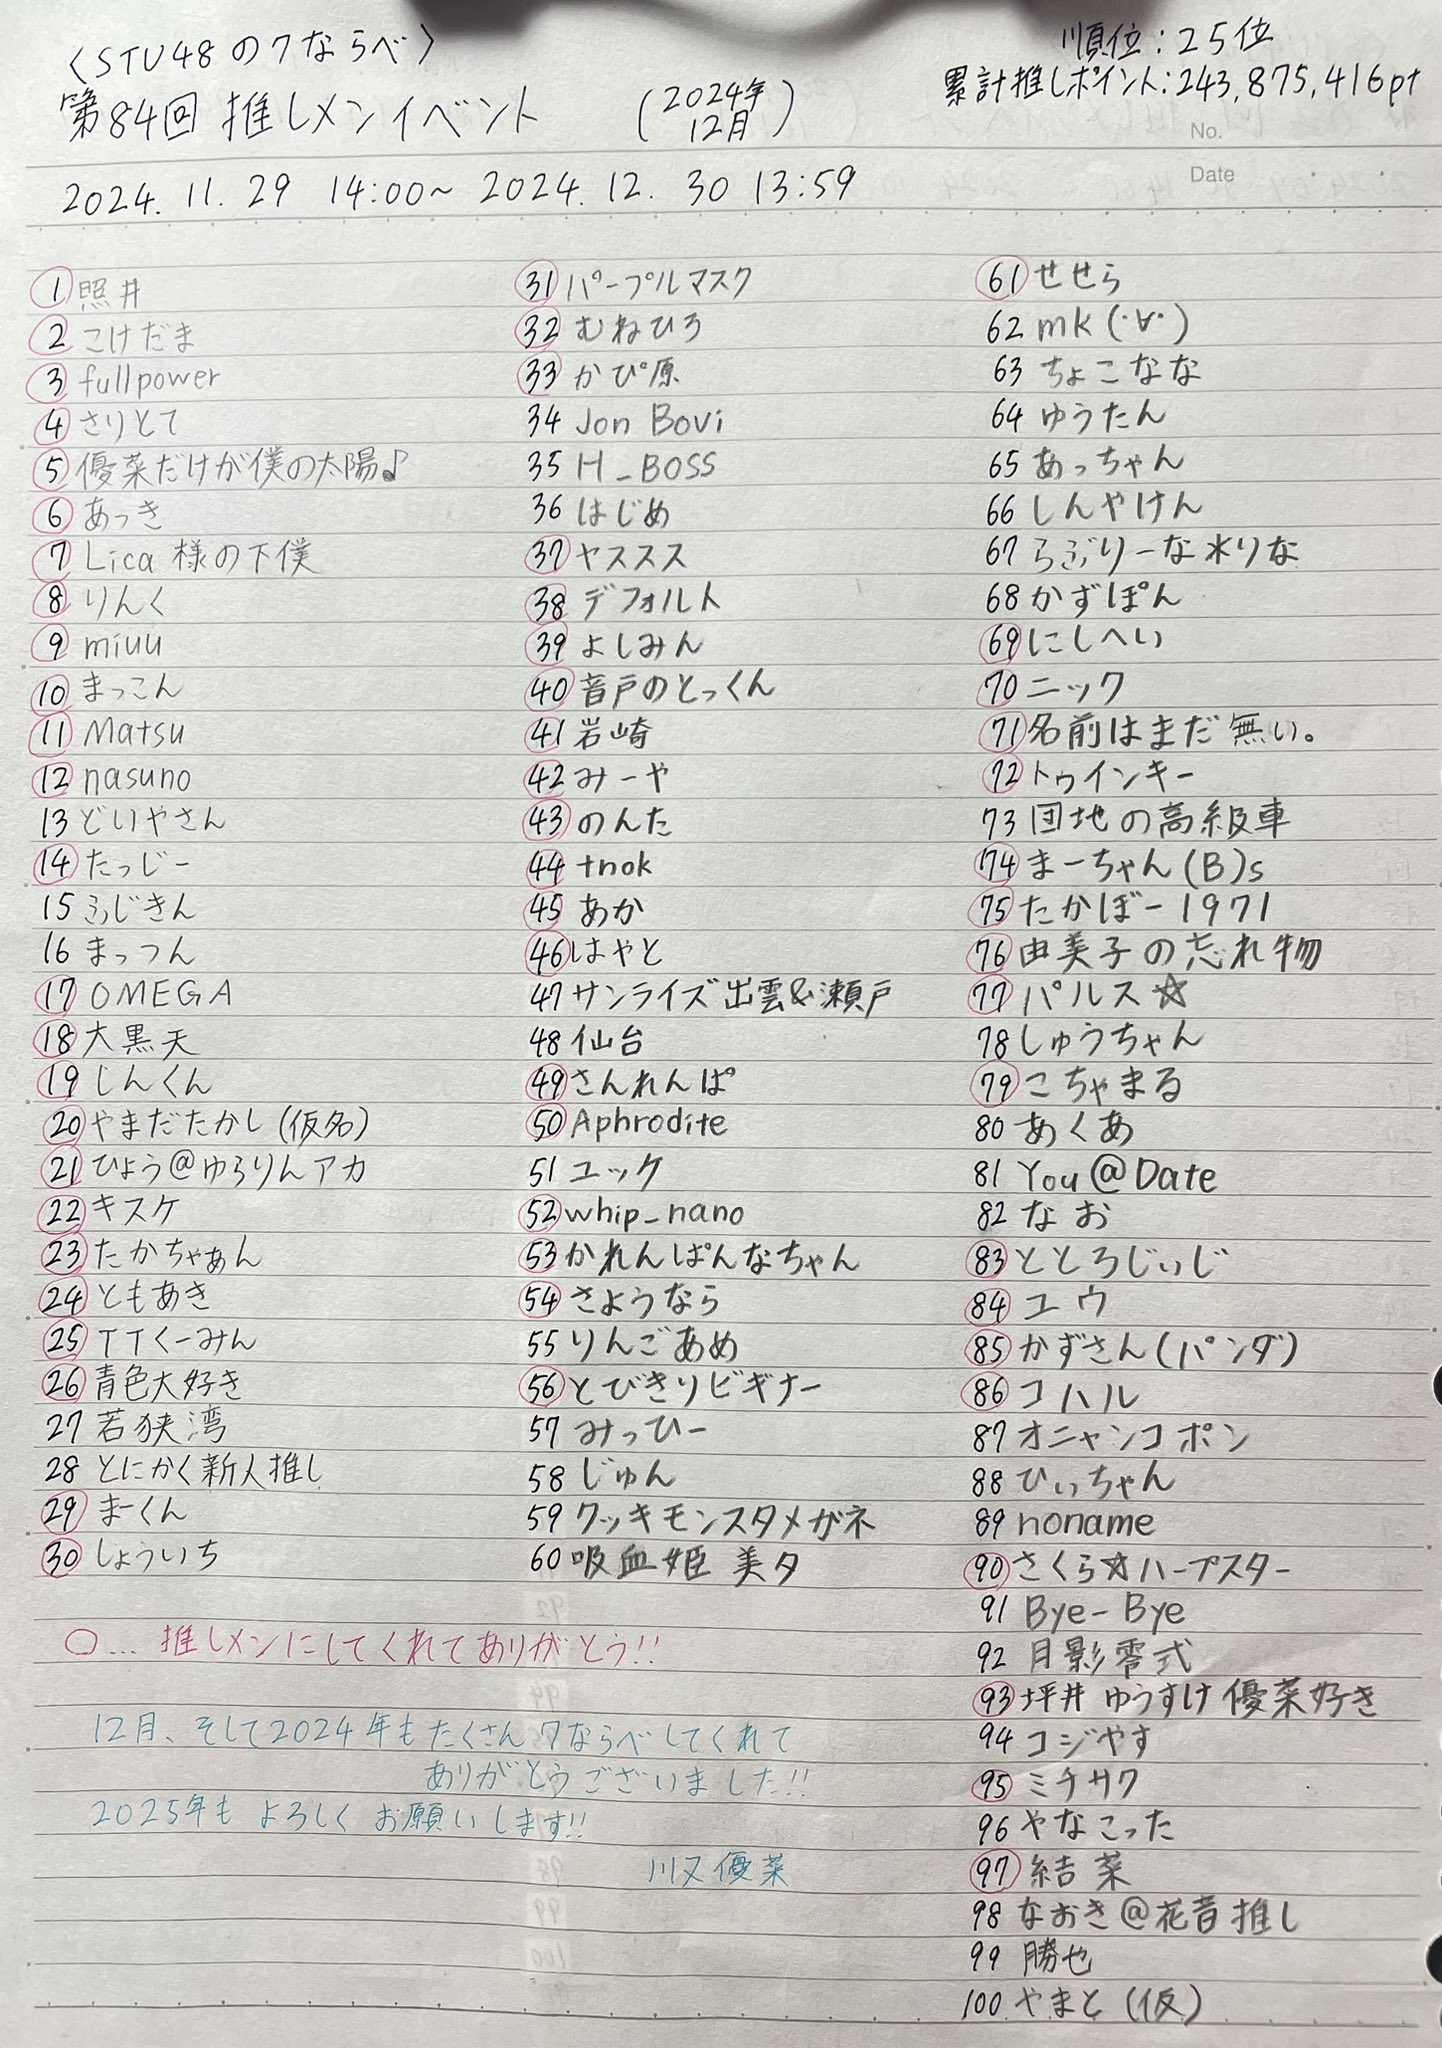 〈STU48の7ならべ〉
第84回 推しメンイベント (2024年12月)
順位:25位
累計推しポイント:243,875,416pt
No.
Date
2024.11.29 14:00~2024.12.30 13:59
1 照井
2 こけだま
3 fullpower
4 さりとて
5 優菜だけが僕の太陽♪
6 あっき
7 Lica様の下僕
8 りんく
9 miuu
10 まっこん
11 Matsu
12 nasuno
13 どいやさん
14 たっじー
15 ふじきん
16 まっつん
17 OMEGA
18 大黒天
19 しんくん
20 やまだたかし(仮名)
21 ひょう@ゆらりんアカ
22 キスケ
23 たかちゃぁん
24 ともあき
25 TTくーみん
26 青色大好き
27 若狭湾
28 とにかく新人推し
29 まーくん
30 しょういち
31 パープルマスク
32 むねひろ
33 かぴ原
34 Jon Bovi
35 H_BOSS
36 はじめ
37 ヤススス
38 デフォルト
39 よしみん
40 音戸のとっくん
41 岩崎
42 みーや
43 のんた
44 tnok
45 あか
46 はやと
47 サンライズ出雲&瀬戸
48 仙台
49 さんれんぱ
50 Aphrodite
51 ユック
52 whip_nano
53 かれんぱんなちゃん
54 さようなら
55 りんごあめ
56 とびきりビギナー
57 みっひー
58 じゅん
59 クッキモンスタメガネ
60 吸血姫 美夕
61 せせら
62 mk(·∀·)
63 ちょこなな
64 ゆうたん
65 あっちゃん
66 しんやけん
67 らぶりーな*りな
68 かずぽん
69 にしへい
70 ニック
71 名前はまだ無い。
72 トゥインキー
73 団地の高級車
74 まーちゃん(B)s
75 たかぼー1971
76 由美子の忘れ物
77 パルス☆
78 しゅうちゃん
79 こちゃまる
80 あくあ
81 You@Date
82 なお
83 ととろじぃじ
84 ユウ
85 かずさん(パンダ)
86 コハル
87 オニャンコポン
88 ひぃちゃん
89 noname
90 さくら☆ハープスター
91 Bye-Bye
92 月影零式
93 坪井ゆうすけ優菜好き
94 コジやす
95 ミチサク
96 やなこった
97 結菜
98 なおき@花音推し
99 勝也
100 やまと(仮)
○…推しメンにしてくれてありがとう!!
12月、そして2024年もたくさん7ならべしてくれて
ありがとうございました!!
2025年もよろしくお願いします!!
川又優菜